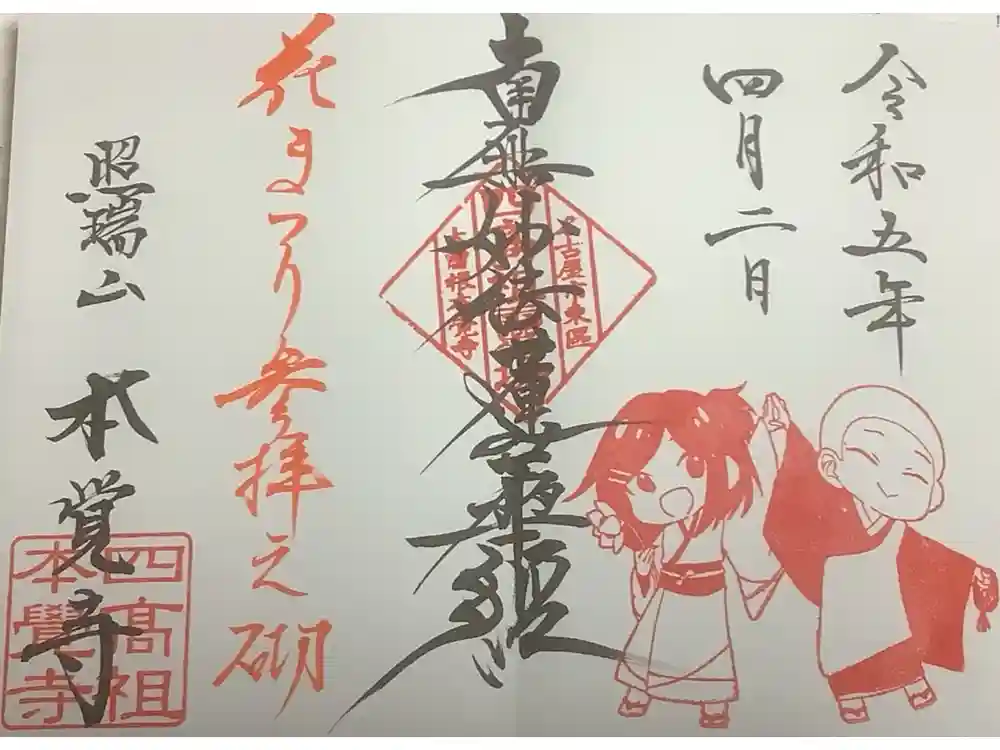 令和五年
四月二日
南無妙法蓮華経
名古屋市東區
大曽根本覚寺
花まつり参拝之砌
照瑞山 本覚寺
四髙祖
本覺寺